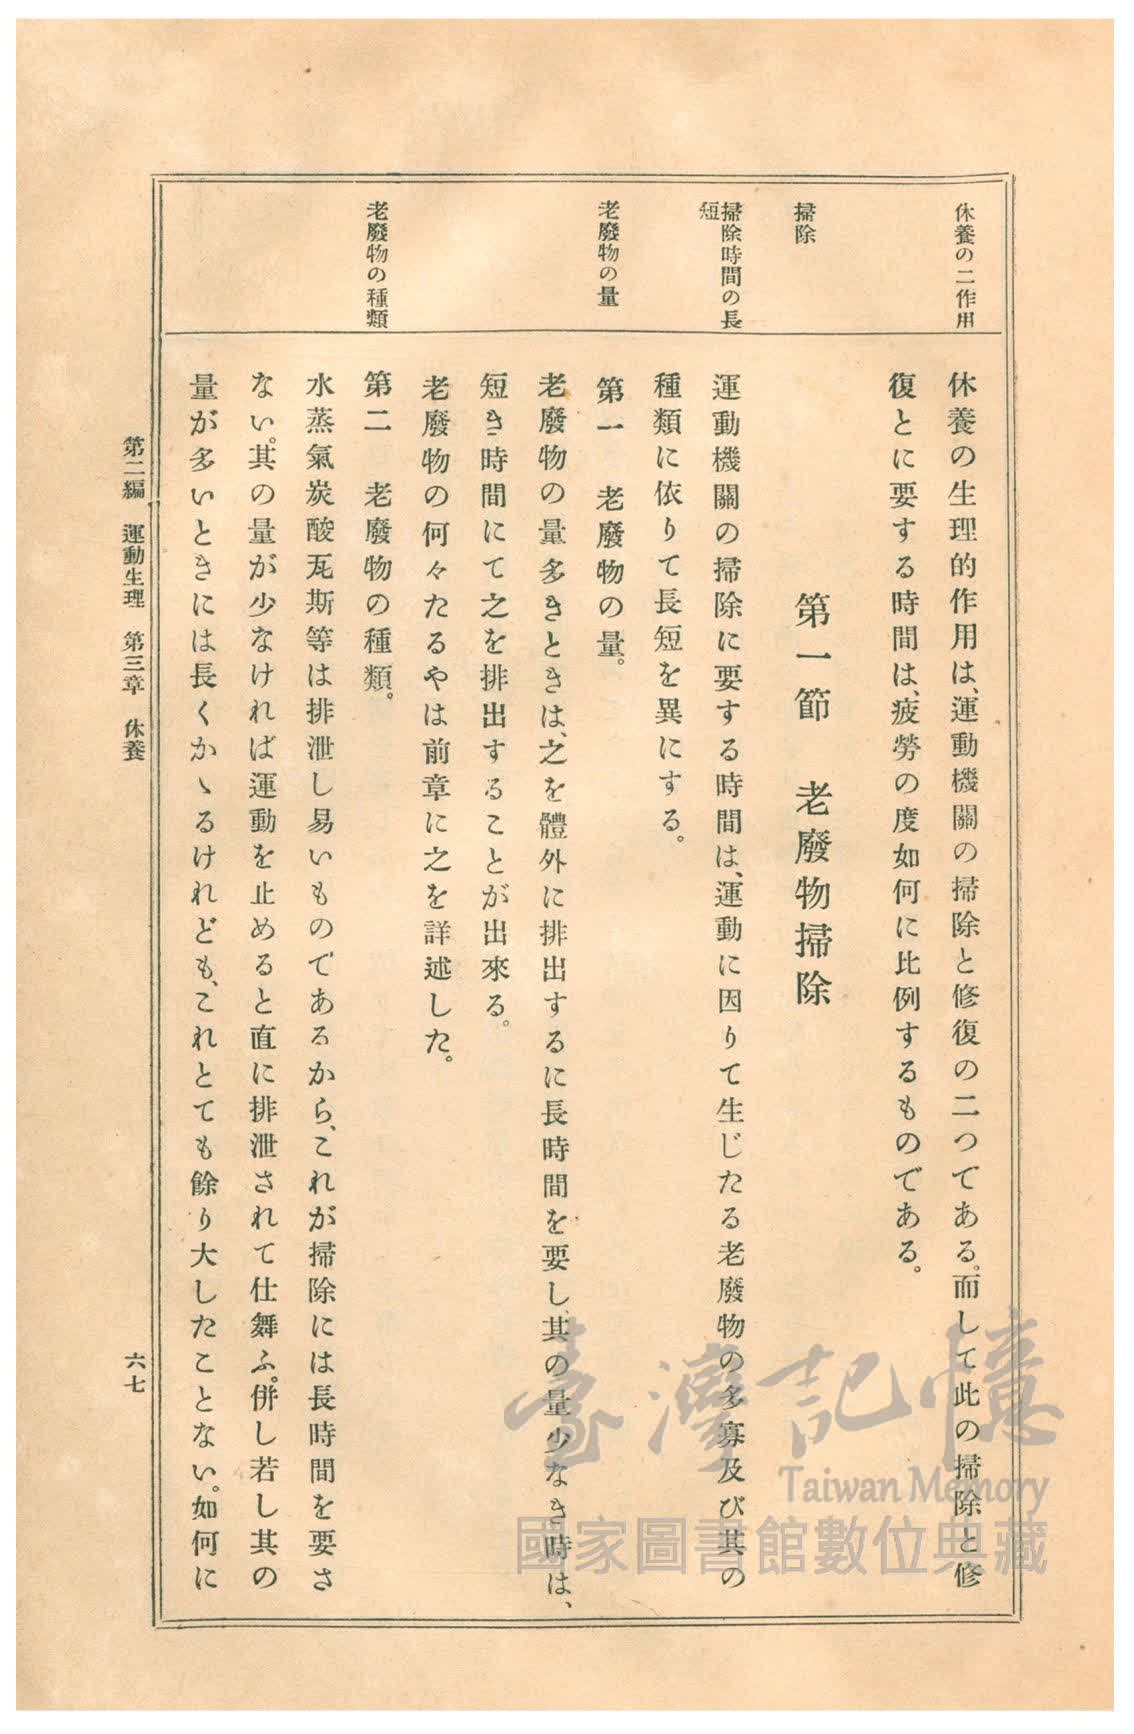 休養の二作用
掃除
掃除時間の長
短
老廢物の量
老廢物の種類
休養の生理的作用は、運動機關の掃除と修復の二つである。而して此の掃除と修
復とに要する時間は、疲勞の度如何に比例するものである。
第一節　老廢物掃除
運動機關の掃除に要する時間は、運動に因りて生じたる老廢物の多寡及び其の
種類に依りて長短を異にする。
第一　老廢物の量。
老廢物の量多きときは、之を體外に排出するに長時間を要し、其の量少なき時は、
短き時間にて之を排出することが出來る。
老廢物の何々たるやは前章に之を詳述した。
第二　老廢物の種類。
水蒸氣炭酸瓦斯等は排泄し易いものであるから、これが掃除には長時間を要さ
ない。其の量が少なければ運動を止めると直に排泄されて仕舞ふ。併し若し其の
量が多いときには長くかゝるけれども、これとても餘り大したことない。如何に
第二編　運動生理　第三章　休養
六七
臺灣記憶
Taiwan Memory
國家圖書館數位典藏